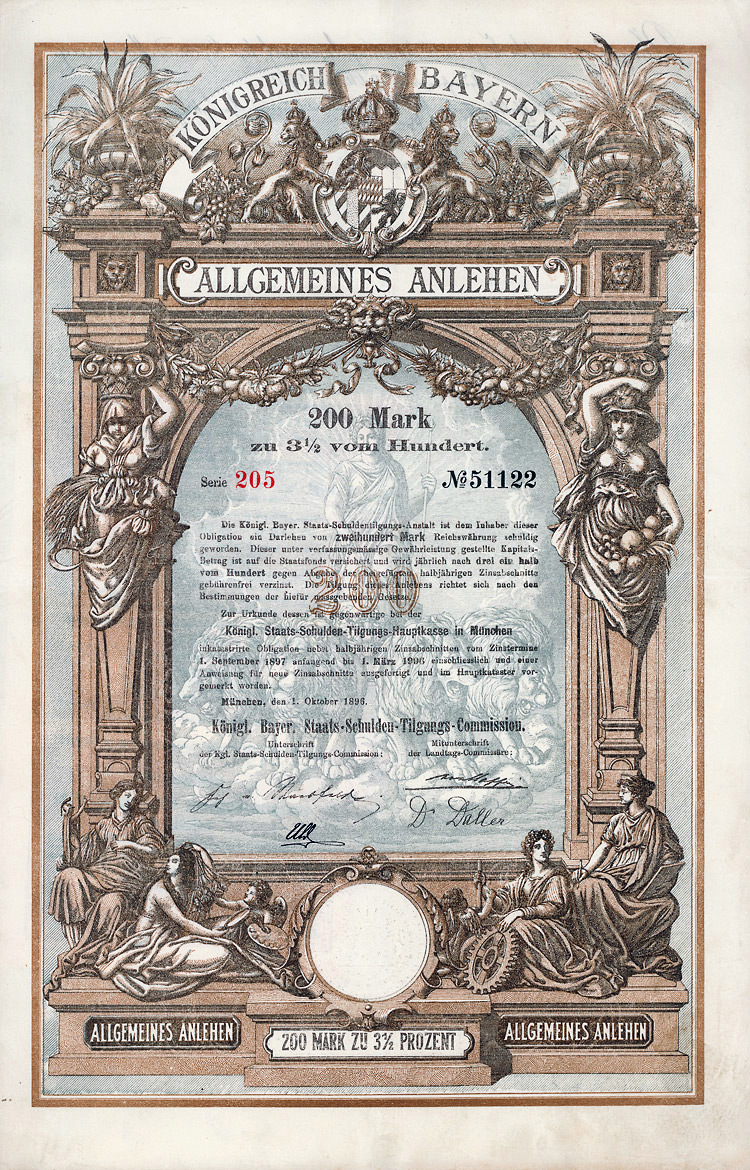 KÖNIGREICH BAYERN
ALLGEMEINES ANLEHEN
200 Mark
zu 3½ vom Hundert.
Serie 205 № 51122
Die Königl. Bayer. Staats-Schuldentilgungs-Anstalt ist dem Inhaber dieser
Obligation ein Darlehen von zweihundert Mark Reichswährung schuldig
geworden. Dieser unter verfassungsmässige Gewährleistung gestellte Kapitals-
Betrag ist auf die Staatsfonds versichert und wird jährlich nach drei ein halb
vom Hundert gegen Abgabe der beigefügten halbjährigen Zinsabschnitte
gebührenfrei verzinst. Die Tilgung dieses Anlehens richtet sich nach den
Bestimmungen der hiefür massgebenden Gesetze.
200
Zur Urkunde dessen ist gegenwärtige bei der
Königl. Staats-Schulden-Tilgungs-Hauptkasse in München
inkatastrirte Obligation nebst halbjährigen Zinsabschnitten vom Zinstermine
1. September 1897 anfangend bis 1. März 1906 einschliesslich und einer
Anweisung für neue Zinsabschnitte ausgefertigt und im Hauptkataster vor-
gemerkt worden.
München, den 1. Oktober 1896.
Königl. Bayer. Staats-Schulden-Tilgungs-Commission.
Unterschrift Mitunterschrift
der Kgl. Staats-Schulden-Tilgungs-Commission: der Landtags-Commissäre:
Dr Daller
200
ALLGEMEINES ANLEHEN
200 MARK ZU 3½ PROZENT
ALLGEMEINES ANLEHEN